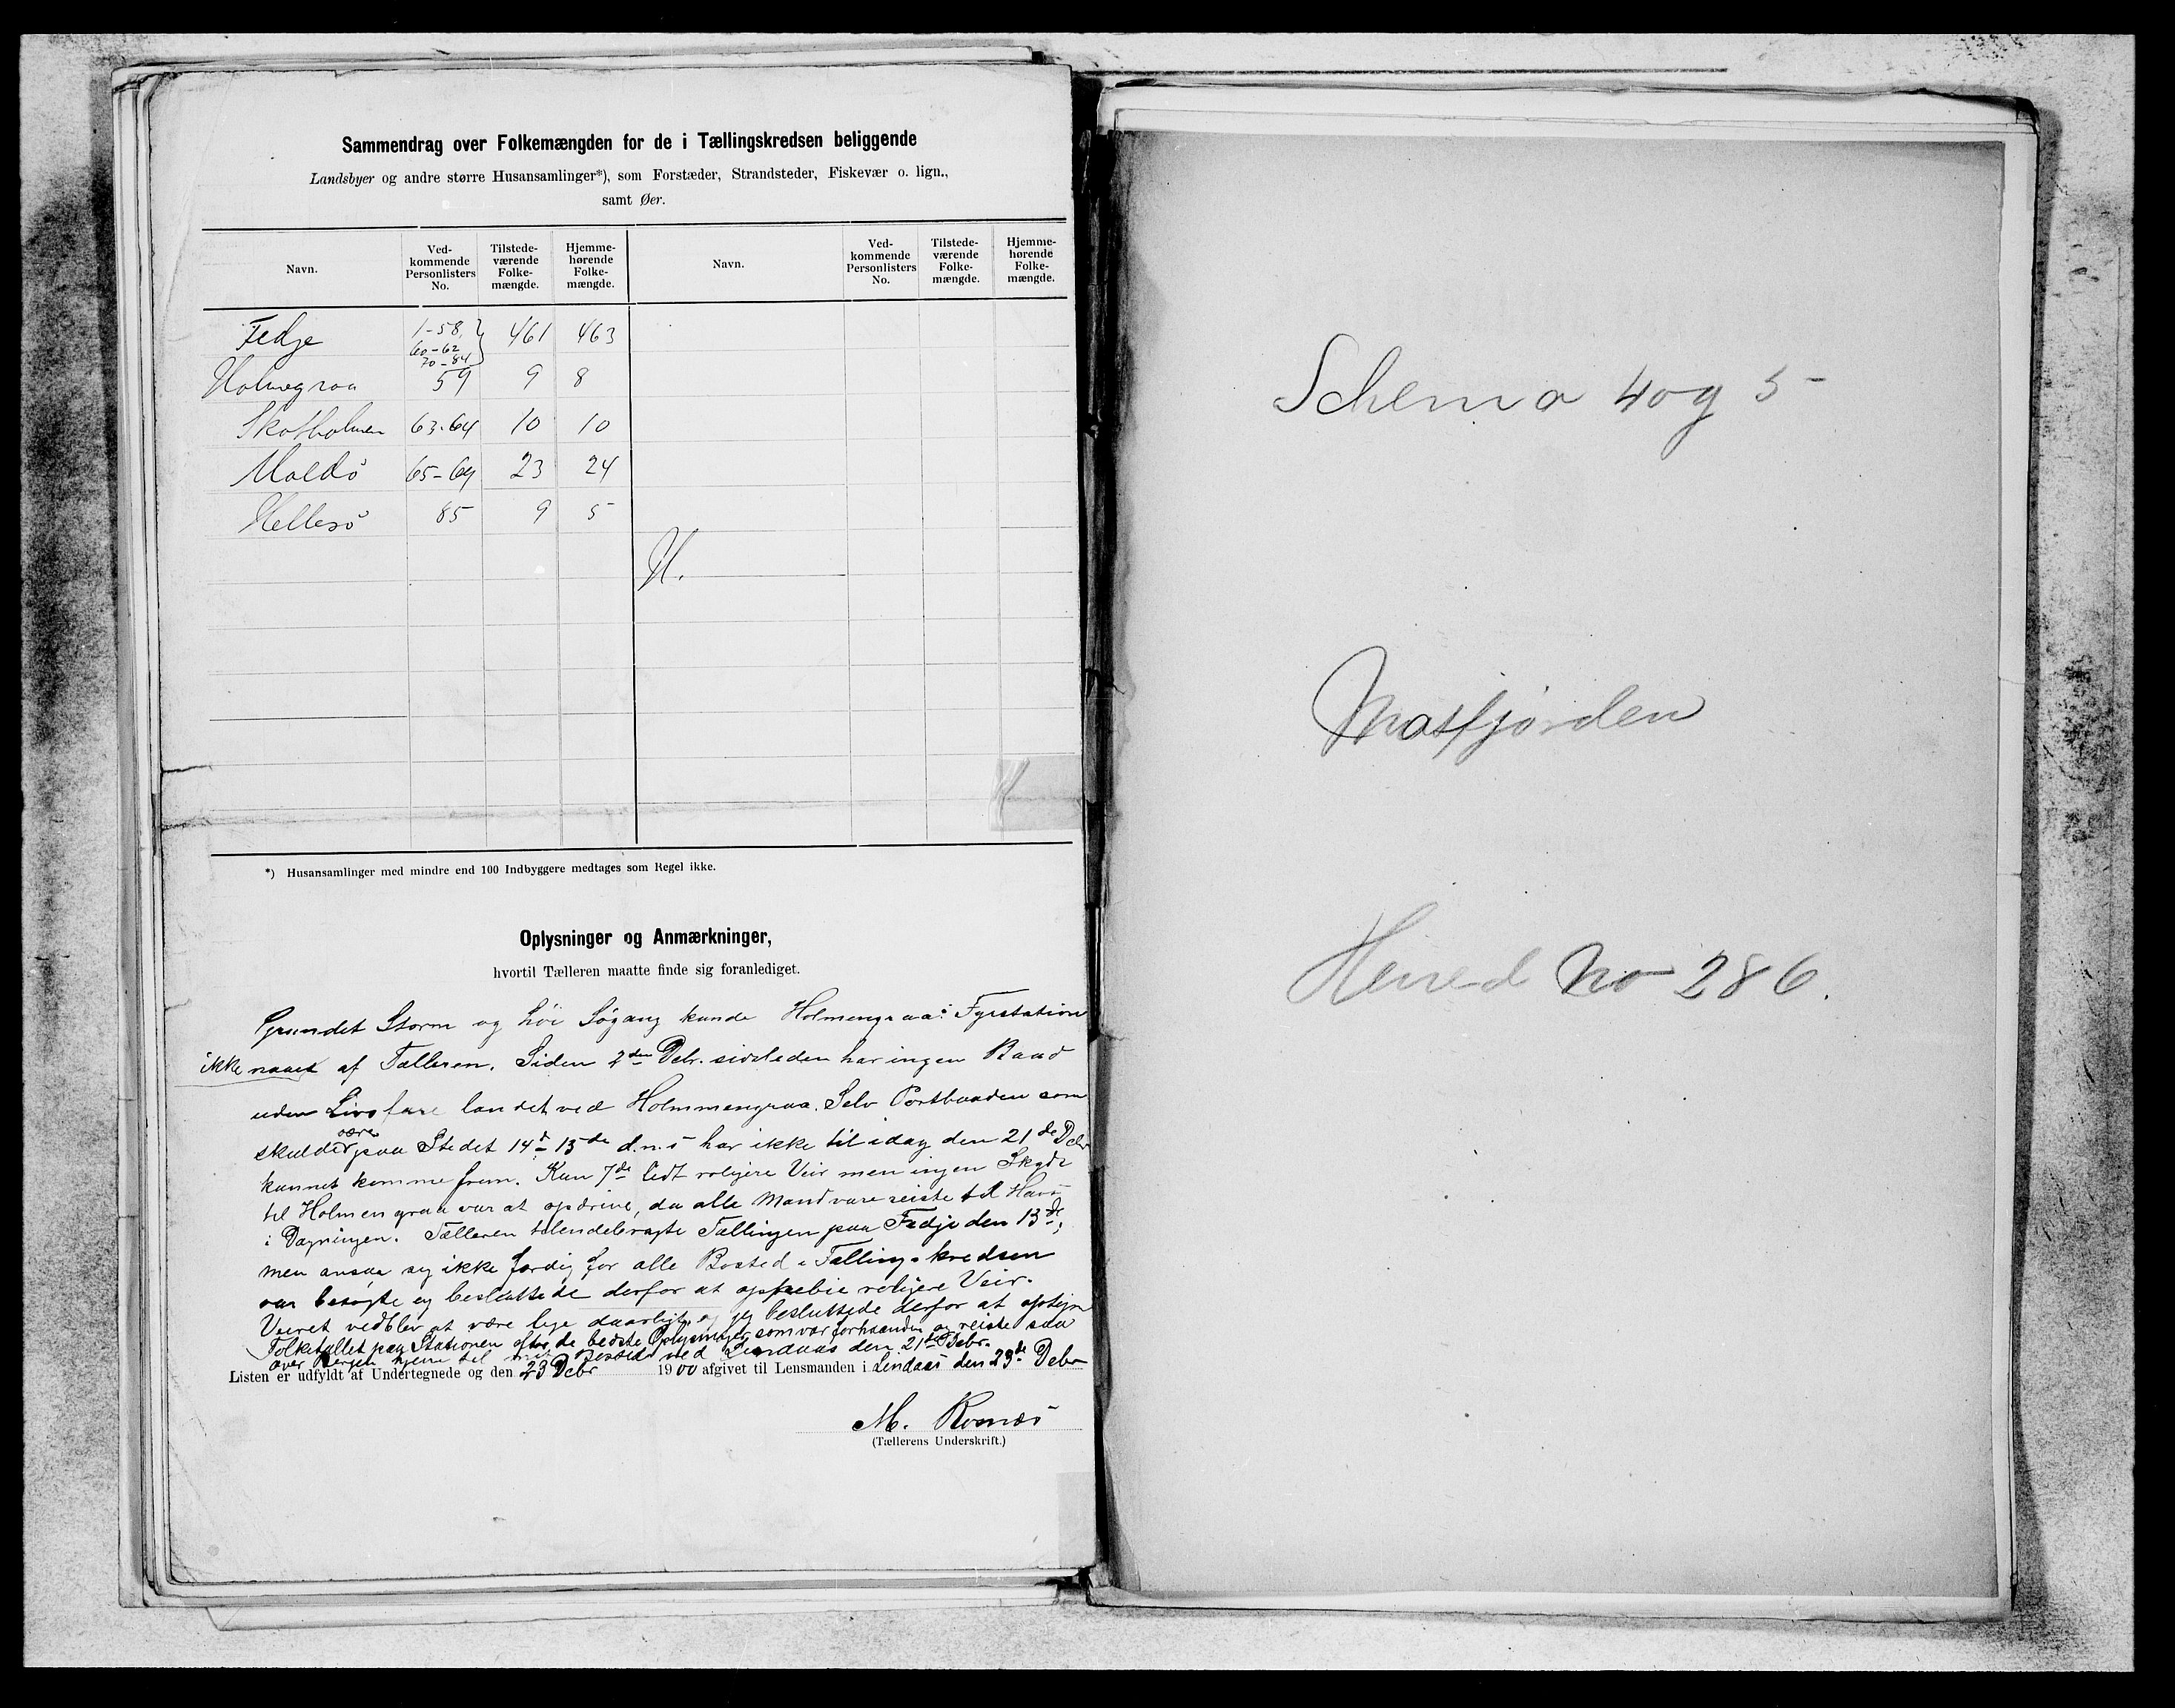 Sammendrag over Folkemængden for de i Tællingskredsen beliggende
Landsbyer og andre større Husansamlinger*), som Forstæder, Strandsteder, Fiskevær o. lign.,
samt Øer.
Navn. Ved-kommende Personlisters No. Tilstede-værende Folke-mængde. Hjemme-hørende Folke-mængde. Navn. Ved-kommende Personlisters No. Tilstede-værende Folke-mængde. Hjemme-hørende Folke-mængde.
Fedje 1-58, 60-62 70-84 461 463
Holmegraa 59 9 8
Skotholmen 63-64 10 10
Moldö 65-69 23 24
Hellesö 85 9 5
H.
*) Husansamlinger med mindre end 100 Indbyggere medtages som Regel ikke.
Oplysninger og Anmærkninger,
hvortil Tælleren maatte finde sig foranlediget.
Grundet Storm og höi Sögang kunde Holmengraa: Fyrstation
ikke naaes af Tælleren. Siden 2den Debr. sidstleden har ingen Baad
uden Livsfare landet ved Holmmengraa. Selv Postbaaden som
skulde være paa Stedet 14d-15de d.m. har ikke til idag den 21de Debr
kunnet komme frem. Kun 7de lidt roligere Veir men ingen Skyds
til Holmengraa var at opdrive, da alle Mand vare reiste til Havs
i Dagningen. Tælleren tilendebragte Tællingen paa Fedje den 13de,
men ansaa sig ikke færdig før alle Bosted i Tællingskredsen
var besøgte og besluttede derfor at oppebie roligere Veir.
Veiret vedblev at være lige daarligt og jeg besluttede derfor at optegne
Folketallet paa Stationen efter de bedste Oplysninger som var forhaanden og reiste saa
over Bergen hjem til mit Bosted ved Lindaas den 21de Debr.
Listen er udfyldt af Undertegnede og den 23 Debr 1900 afgivet til Lensmanden i Lindaas den 23de Debr
M. Romnes
(Tællerens Underskrift.)
Schema 4 og 5
Masfjorden
Herred No 286.